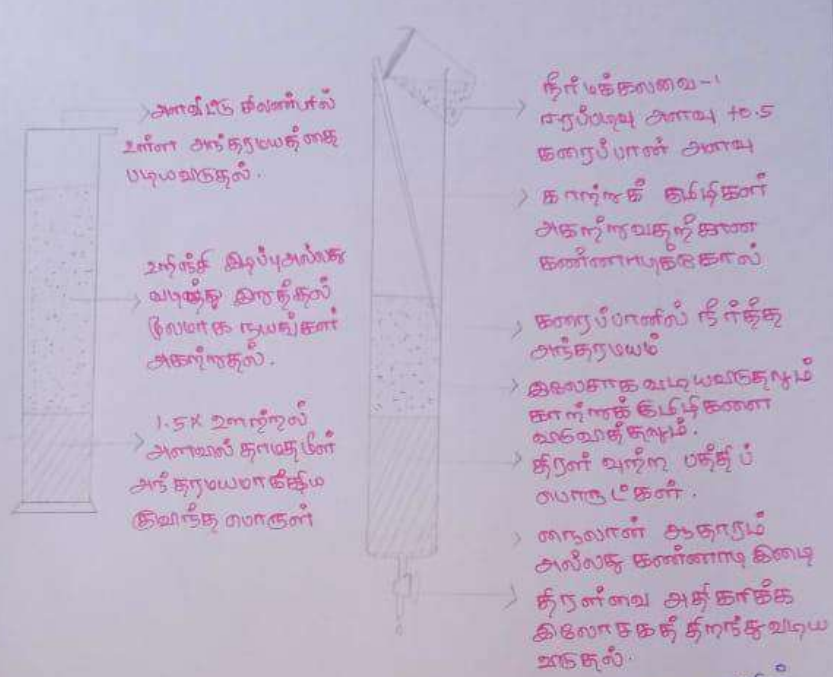 அளவிட்டு சிலிண்டரில்
உள்ள அந்தரமயத்தை
படியவிடுதல்.
உறிஞ்சி இடிப்பு அல்லது
வடித்து இறுத்தல்
மூலமாக நயங்கள்
அகற்றுதல்.
1.5X ஊற்றல்
அளவில் தாமத மீள்
அந்தரமயமாக்கிம
குவிந்த பொருள்
நீர்மக்கலவை-1
ஈரப்படிவு அளவு +0.5
கரைப்பான் அளவு
காற்றுக் குமிழிகள்
அகற்றுவதற்கான
கண்ணாடிக்கோல்
கரைப்பானில் நீர்த்த
அந்தரமயம்
இலேசாக வடியவிடுதலும்
காற்றுக் குமிழிகளை
வெளியேத்தலும்.
திரள் வற்ற பத்தி ப்
பொருட்கள்.
நைலான் ஆதாரம்
அல்லது கண்ணாடி இழை
திரள்வை அதிகரிக்க
இலோசகத் திறந்து வடிய
விடுதல்.